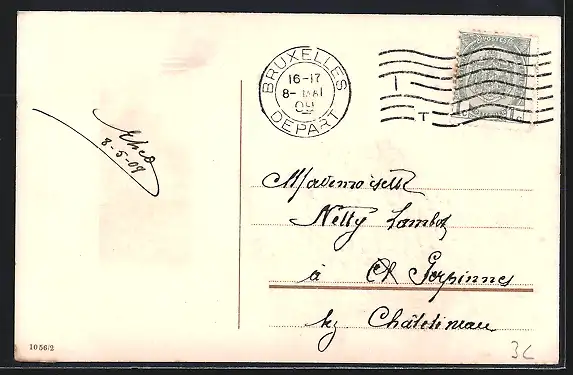 BRUXELLES
16-17
8- MAI
09
DEPART
I
T
1 C
8-5-09
Mademoiselle
Nelly Lambot
à Gerpinnes
Châtelineau
1056/2
3C